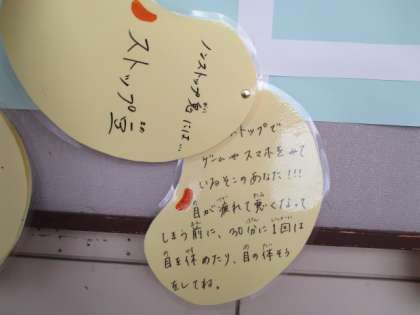 ノンストップ
には…
ストップ豆
トップで
ゲームやスマホをみて
いるそこのあなた!!!
目が疲れて悪くなって
しまう前に、30分に1回は
目を休めたり、目の体そう
をしてね。